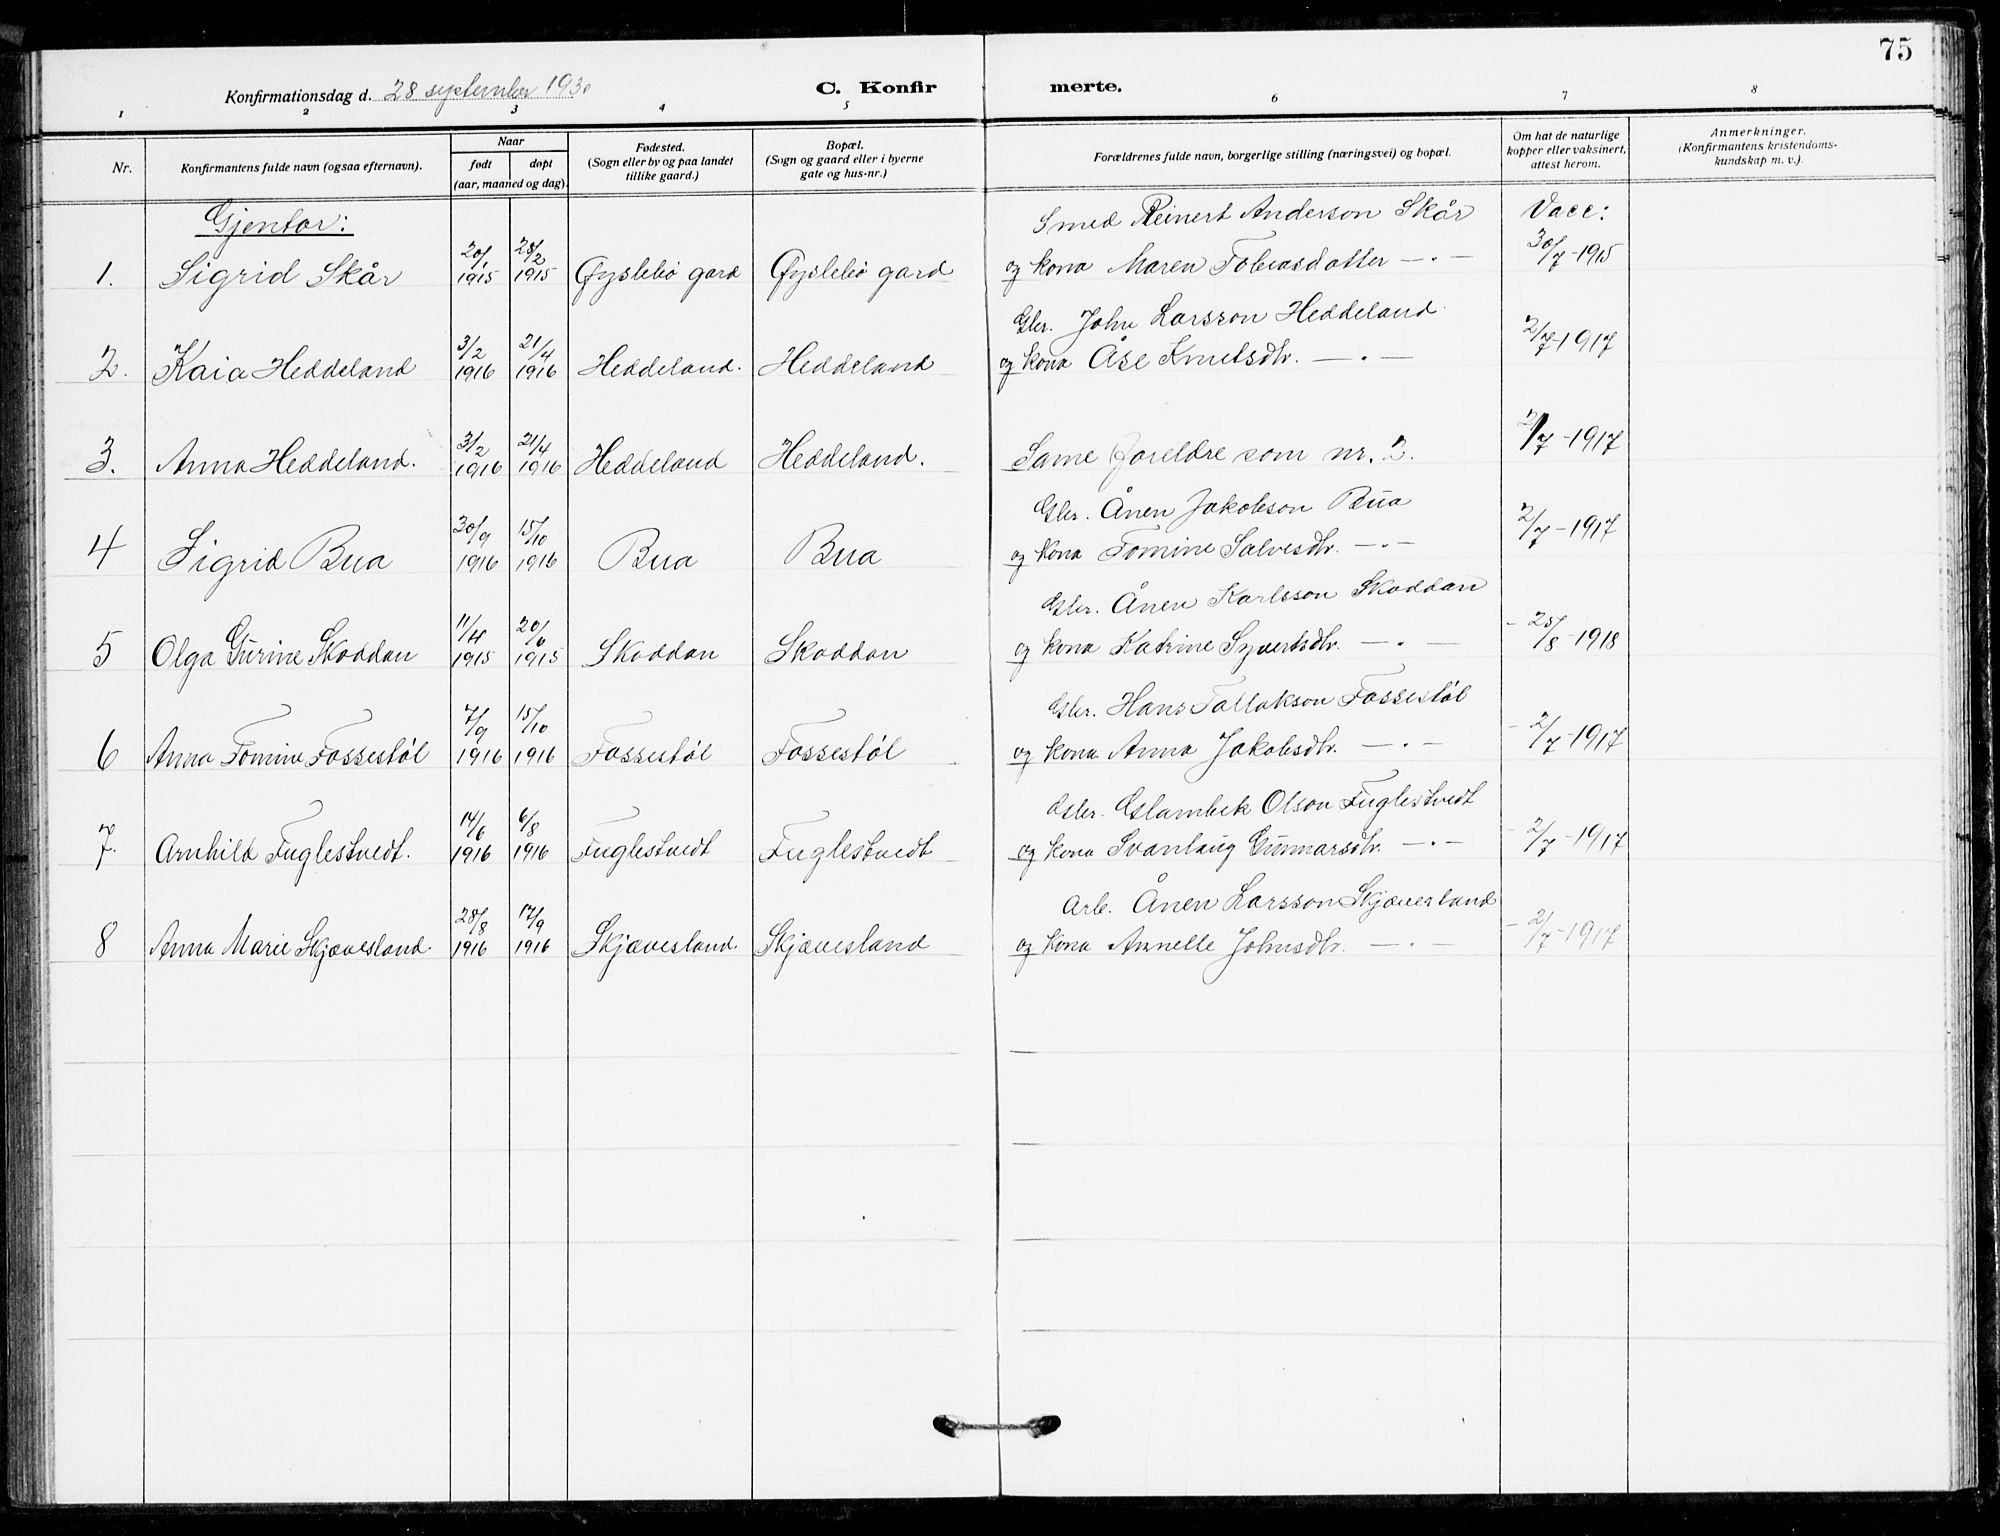 75
Konfirmationsdag d. 28 september 1930 C. Konfir merte.
1 2 3 4 5 6 7 8
Nr. Konfirmantens fulde navn (ogsaa efternavn). Naar født døpt (aar, maaned og dag). Fødested. (Sogn eller by og paa landet tillike gaard.) Bopæl. (Sogn og gaard eller i byerne gate og hus-nr.) Forældrenes fulde navn, borgerlige stilling (næringsvei) og bopæl. Om hat de naturlige kopper eller vaksinert, attest herom. Anmerkninger. (Konfirmantens kristendoms-kundskap m. v.).
Gjentor: Smed Reinert Anderson Skår Vacc:
1. Sigrid Skår 20/1 1915 28/2 1915 Øyslebø gard Øyslebø gard og kona Maren Tobiasdatter —〃— 30/7-1915
Gbr. John Larsson Heddeland
2. Kaia Heddeland 3/2 1916 21/4 1916 Heddeland. Heddeland og kona Åse Knutsdtr. —〃— 2/7-1917
3. Anna Heddeland. 3/2 1916 21/4 1916 Heddeland Heddeland. Same foreldre som nr. 2. 2/7-1917
Gbr. Ånen Jakobson Bua
4 Sigrid Bua 30/9 1916 15/10 1916 Bua Bua og kona Tomine Salvesdtr. —〃— 2/7-1917
Gbr. Ånen Karlsson Skoddan
5 Olga Gurine Skoddan 11/4 1915 20/6 1915 Skoddan Skoddan og kona Katrine Syvertsdtr. —〃— - 25/8-1918
Gbr. Hans Tallakson Fossestøl
6 Anna Tomine Fossestøl 7/9 1916 15/10 1916 Fossestøl Fossestøl og kona Anna Jakobsdtr. —〃— - 2/7-1917
Gbr. Eslambek Olson Fuglestvedt
7. Arnhild Fuglestvedt. 14/6 1916 6/8 1916 Fuglestvedt Fuglestvedt og kona Svanlaug Gunnarsdtr. —〃— - 2/7-1917
Arb. Ånen Larsson Skjævesland
8 Anna Marie Skjævesland. 28/8 1916 17/9 1916 Skjævesland. Skjævesland og kona Annelle Johnsdtr. —〃— - 2/7-1917